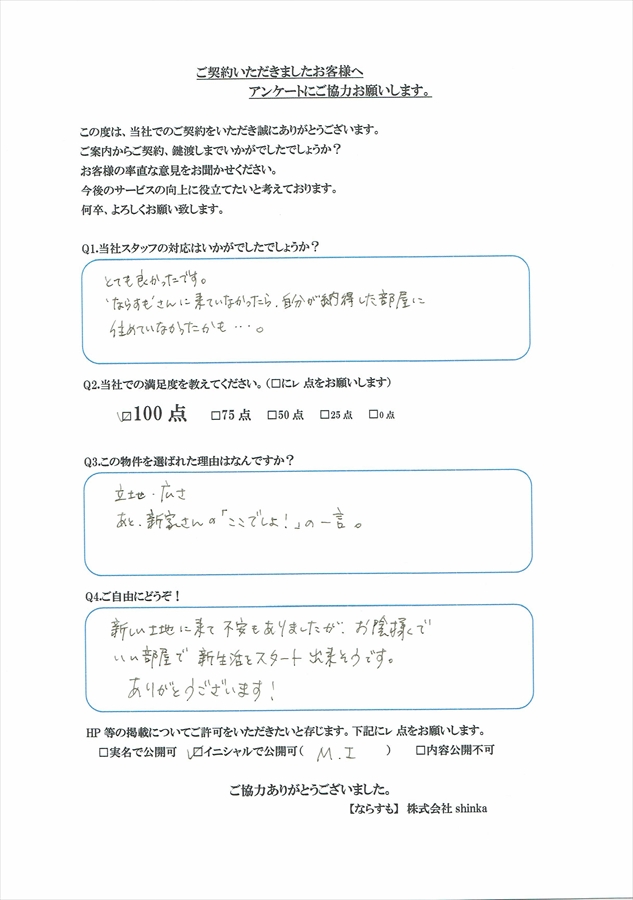 ご契約いただきましたお客様へ
アンケートにご協力お願いします。
この度は、当社でのご契約をいただき誠にありがとうございます。
ご案内からご契約、鍵渡しまでいかがでしたでしょうか？
お客様の率直な意見をお聞かせください。
今後のサービスの向上に役立てたいと考えております。
何卒、よろしくお願い致します。
Q1.当社スタッフの対応はいかがでしたでしょうか？
とても良かったです。
"ならすも"さんに来ていなかったら、自分が納得した部屋に
住めていなかったかも…。
Q2.当社での満足度を教えてください。（□にレ点をお願いします）
☑100点 □75点 □50点 □25点 □0点
Q3.この物件を選ばれた理由はなんですか？
立地・広さ
あと、新家さんの「ここでしょ！」の一言。
Q4.ご自由にどうぞ！
新しい土地に来て不安もありましたが、お陰様で
いい部屋で新生活をスタート出来そうです。
ありがとうございます！
HP等の掲載についてご許可をいただきたいと存じます。下記にレ点をお願いします。
□実名で公開可 ☑イニシャルで公開可（ M.I ） □内容公開不可
ご協力ありがとうございました。
【ならすも】 株式会社 shinka